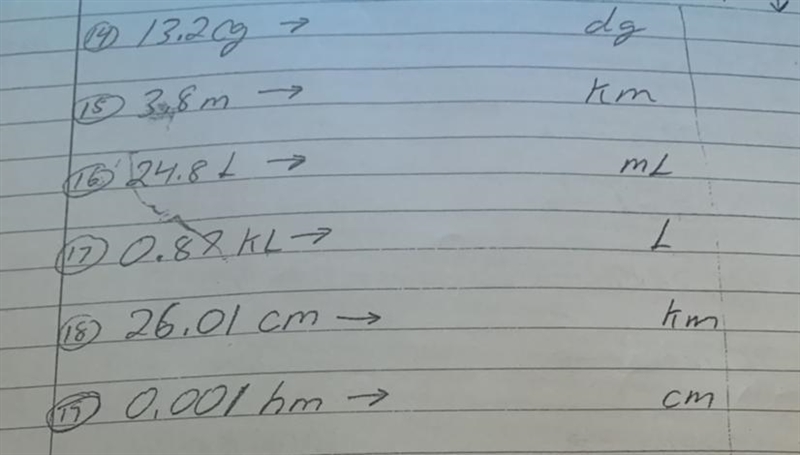 14 13.2cg → dg
15 3.8m → Km
16 24.8 L → mL
17 KL → L
18 26.01 cm → Km
19 0.001 hm → cm